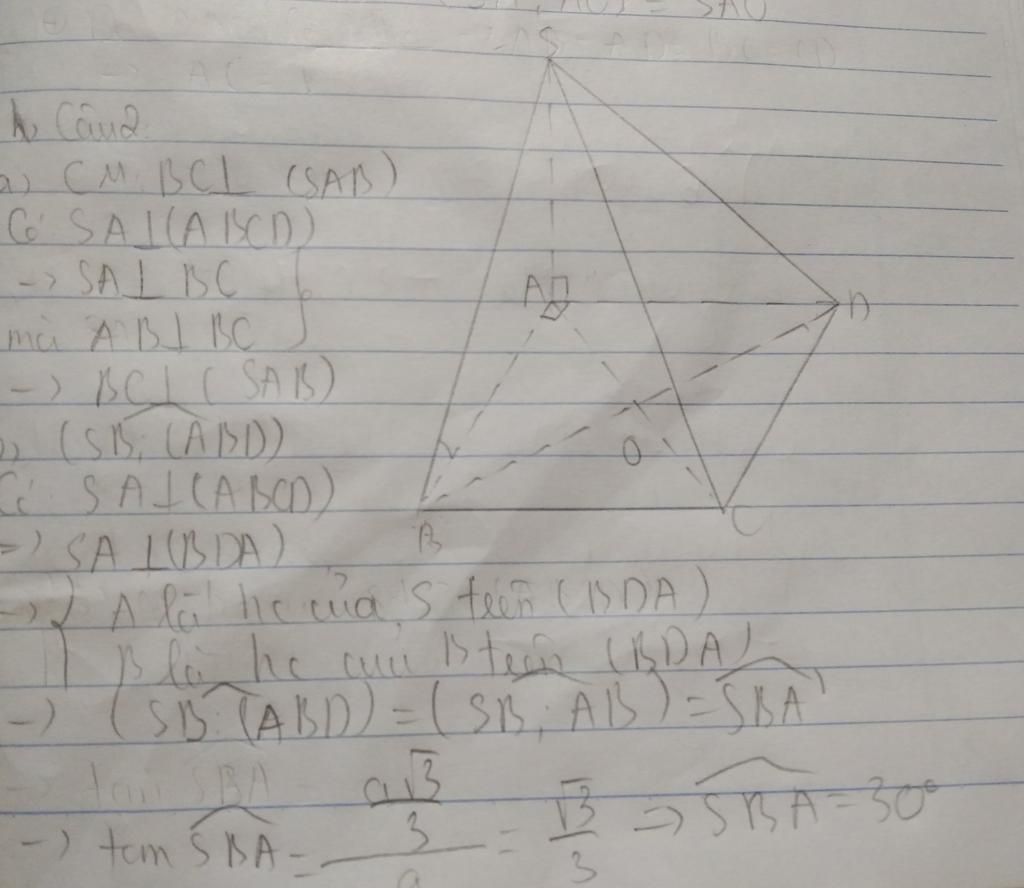 Câu 2
a) CM: BC ⊥ (SAB)
Có SA ⊥ (ABCD)
→ SA ⊥ BC
mà AB ⊥ BC
→ BC ⊥ (SAB)
(SB; (ABD))
Có SA ⊥ (ABCD)
=> SA ⊥ (BDA)
→ A là hc của S trên (BDA)
B là hc của B trên (BDA)
→ (SB; (ABD)) = (SB; AB) = SBA
→ tan SBA
→ tan SBA = a√3/3 / a = √3/3 => SBA = 30°
S
A
D
O
B
C